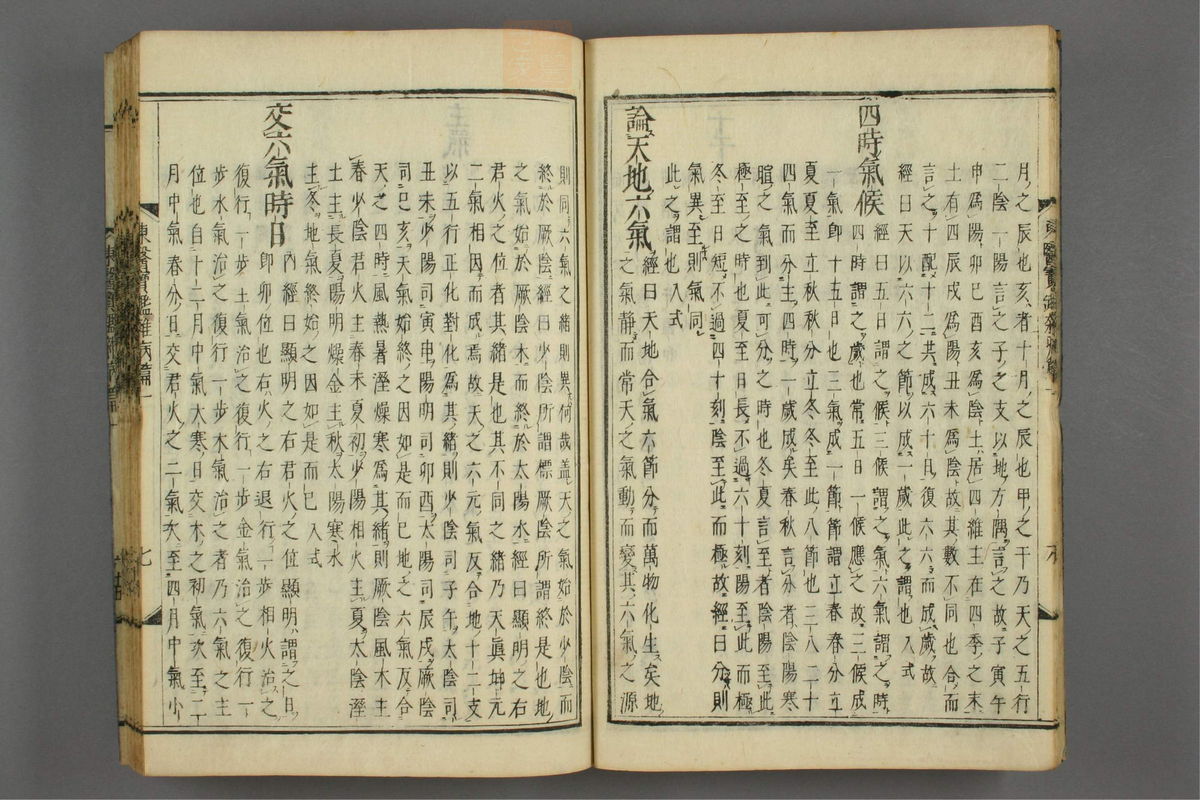 月之辰也亥者十月之辰也甲之干乃天之五行
二陰一陽言之子之支以地方隅言之故子寅午
申為陽卯巳酉亥為陰土居四維主在四季之末
土有四辰戌為陽丑未為陰故其數不同也合而
言之十配十二共成六十日復六六而成歲故
經曰天以六六之節以成一歲此之謂也入式
四時氣候經曰五日謂之候三候謂之氣六氣謂之時
四時謂之歲也常五日一候應之故三候成
一氣即十五日也三氣成一節節謂立春春分立
夏夏至立秋秋分立冬冬至此八節也三八二十
四氣而分主四時一歲成矣春秋言分者陰陽寒
暄之氣到此可分之時也冬夏言至者陰陽至此
極至之時也夏至日長不過六十刻陽至此而極
冬至日短不過四十刻陰至此而極故經曰分則
氣異至則氣同
此之謂也入式
論天地六氣經曰天地合氣六節分而萬物化生矣地
之氣靜而常天之氣動而變其六氣之源
則同六氣之緒則異何哉盖天之氣始於少陰而
終於厥陰經曰少陰所謂標厥陰所謂終是也地
之氣始於厥陰木而終於太陽水經曰顯明之右
君火之位者其緒是也其不同之緒乃天眞坤元
二氣相因而成焉故天之六元氣反合地十二支
以五行正化對化為其緒則少陰司子午太陰司
丑未少陽司寅申陽明司卯酉太陽司辰戌厥陰
司巳亥天氣始終之因如是而已地之六氣反合
天之四時風熱暑溼燥寒為其緒則厥陰風木主
春少陰君火主春末夏初少陽相火主夏太陰溼
土主長夏陽明燥金主秋太陽寒水
主冬地氣終始之因如是而已入式
交六氣時日內經曰顯明之右君火之位顯明謂之日
即卯位也右火之右退行一步相火治之
復行一步土氣治之復行一步金氣治之復行一
步水氣治之復行一步木氣治之者乃六氣之主
位也自十二月中氣大寒日交木之初氣次至二
月中氣春分日交君火之二氣次至四月中氣小
東醫寶鑑雜病篇一
七